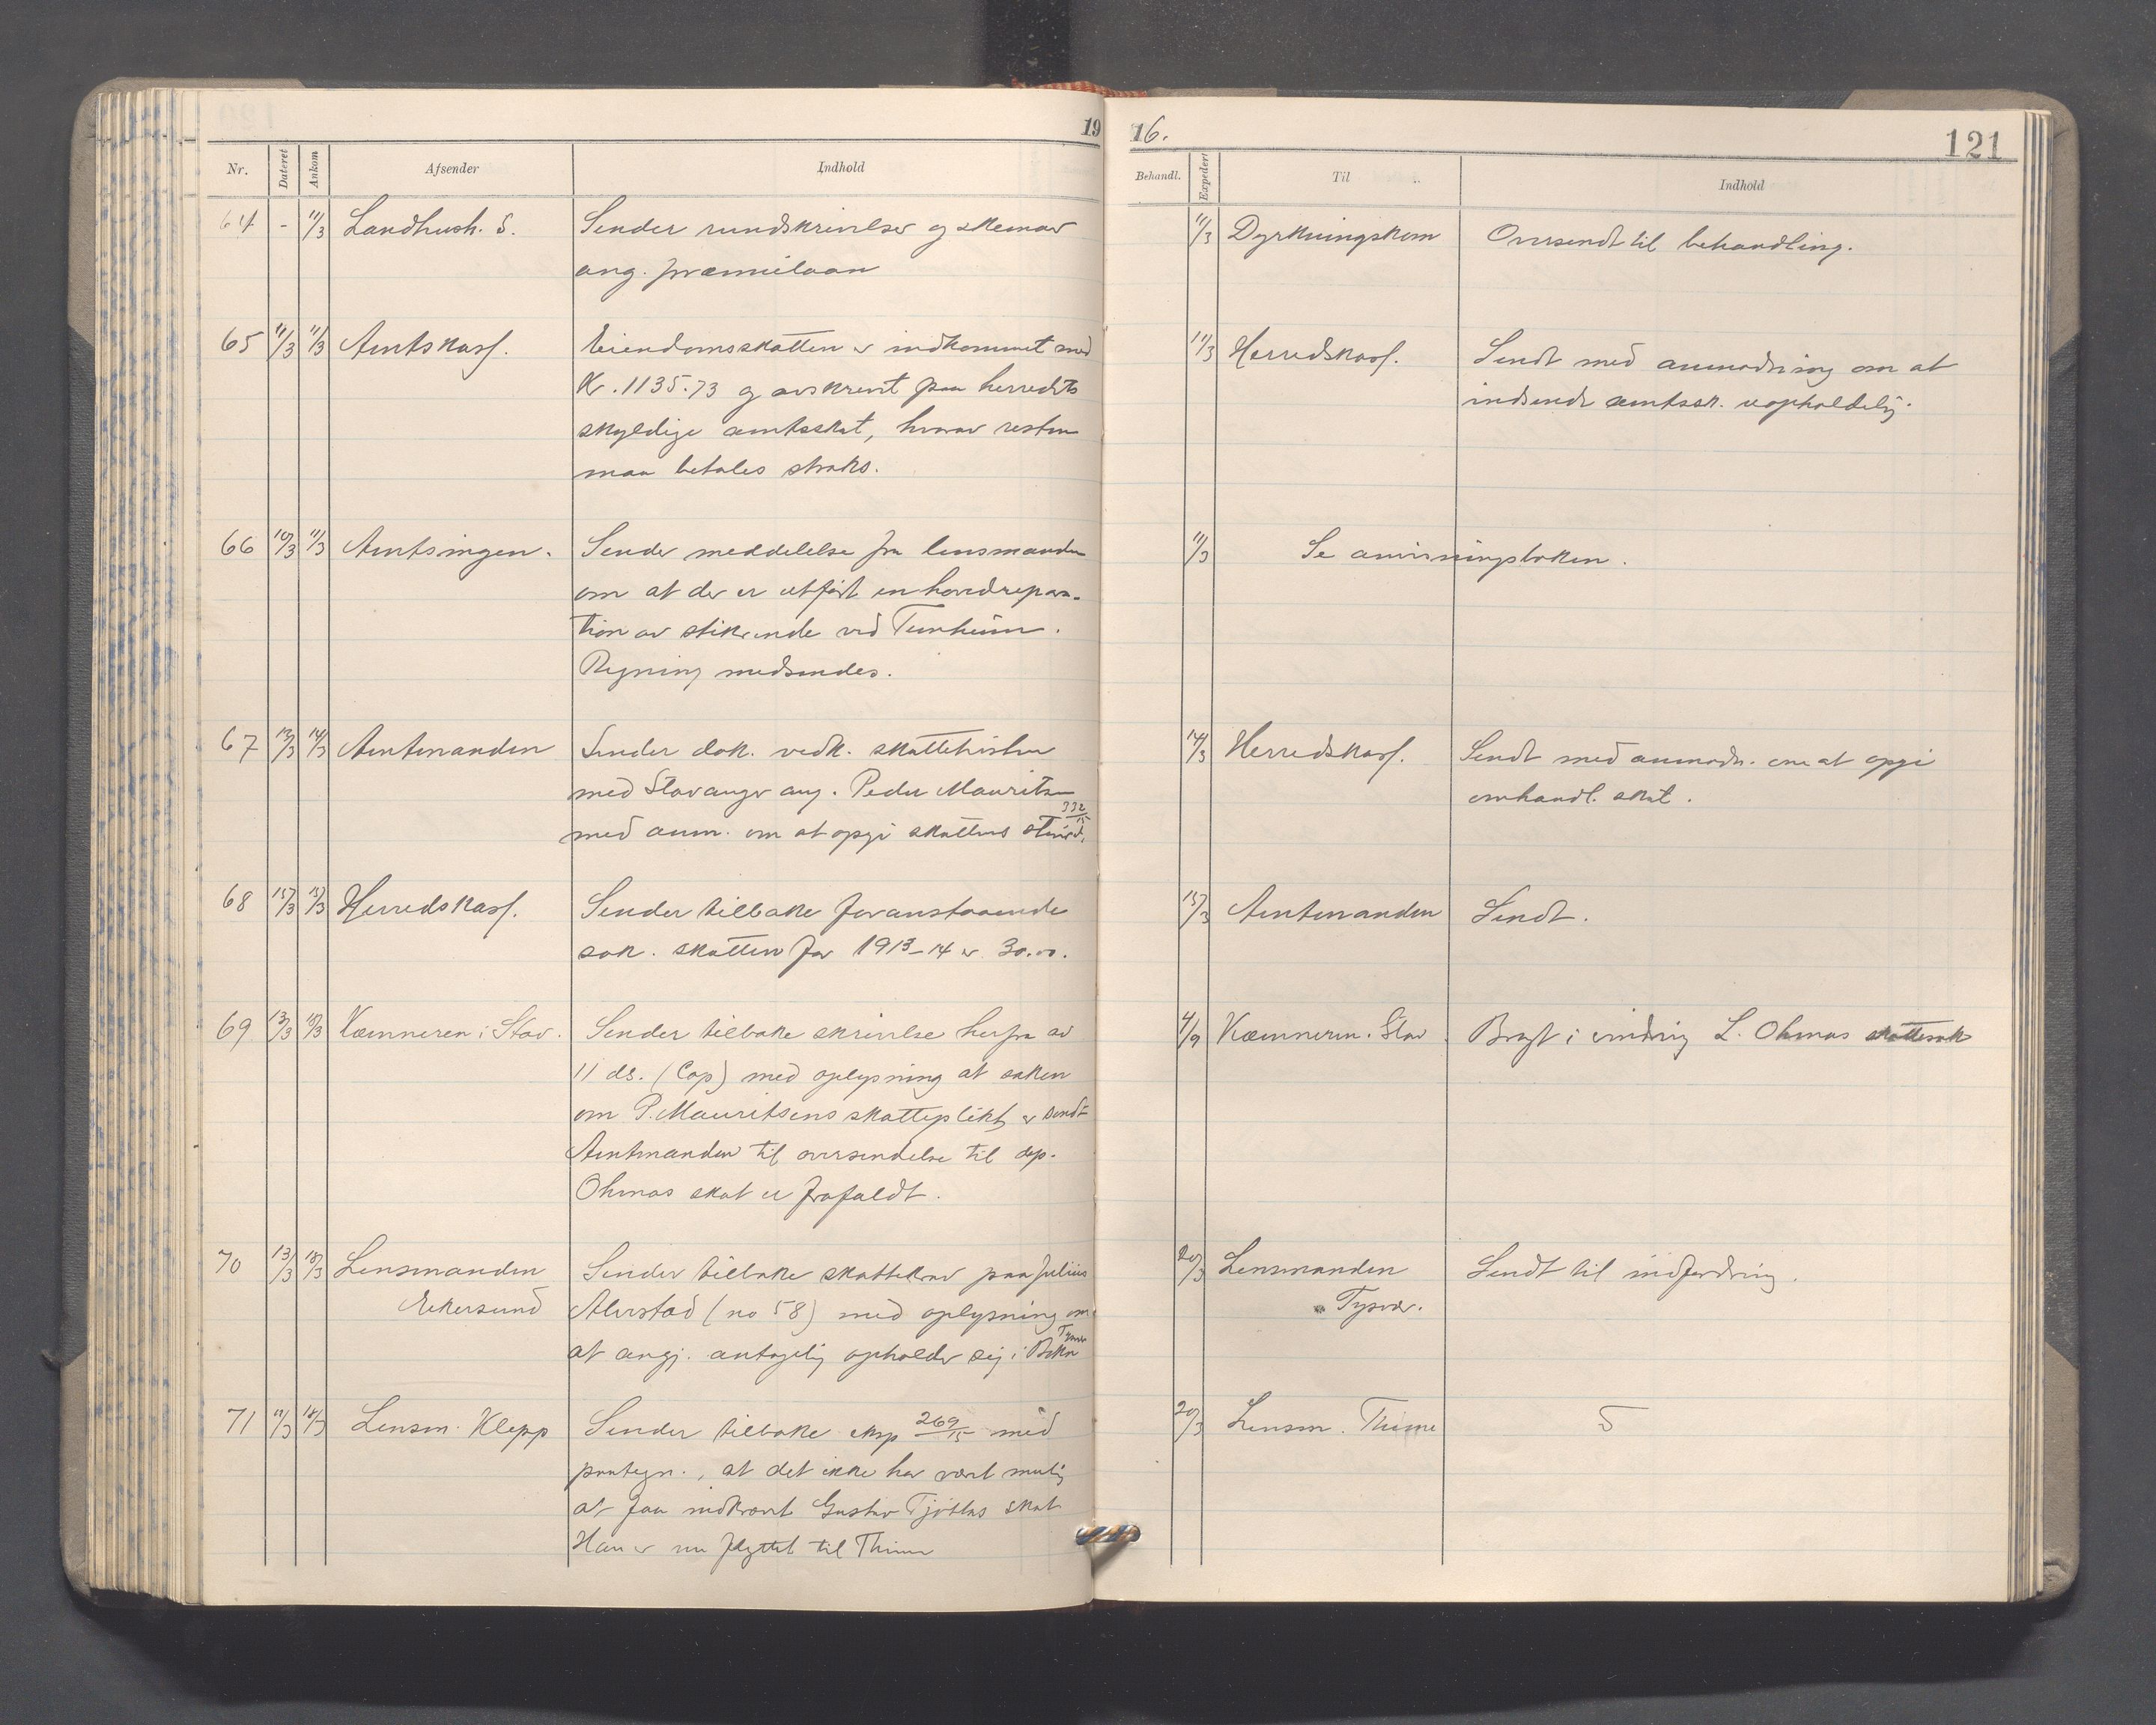 19 16.
121
Nr. Dateret Ankom Afsender Indhold
Behandl. Expedert Til Indhold
64 - 11/3 Landhush. S. Sender rundskrivelser og skemaer
ang. præmielaan
11/3 Dyrkningskom Oversendt til behandling.
65 11/3 11/3 Amtskass. Eiendomsskatten er indkommet med
Kr. 1135.73 og avskrevt paa herredets
skyldige amtsskat, hvorav resten
maa betales straks.
11/3 Herredskass. Sendt med anmodning om at
indsende amtssk. uopholdelig.
66 10/3 11/3 Amtsingen. Sender meddelelse fra lensmanden
om at der er utført en hovedrepara-
tion av stikrende ved Tunheim.
Regning medsendes.
11/3 Se anvisningsboken.
67 13/3 14/3 Amtmanden Sender dok. vedk. skattetvisten
med Stavanger ang. Peder Mauritsen
med anm. om at opgi skattens størd. 332/15
14/3 Herredskass. Sendt med anmodn. om at opgi
omhandl. skat.
68 15/3 15/3 Herredskass. Sender tilbake foranstaaende
sak. skatten for 1913-14 er 30.00.
15/3 Amtmanden Sendt.
69 13/3 18/3 Kæmneren i Stav. Sender tilbake skrivelse herfra av
11 ds. (Cop) med oplysning at saken
om P. Mauritsens skatteplikt er sendt
Amtmanden til oversendelse til dep.
Ohmas skat er frafaldt.
4/9 Kæmneren i Stav. Bragt i erindring L. Ohmas skattesak
70 13/3 18/3 Lensmanden
Ekersund
Sender tilbake skattekrav paa Julius
Alvestad (no 58) med oplysning om
at angj. antagelig opholder sig i Bokn Tysvær
20/3 Lensmanden
Tysvær.
Sendt til indfordring.
71 11/3 18/3 Lensm. Klepp Sender tilbake eksp 269/15 med
paategn., at det ikke har vært mulig
at faa indkrævt Gustav Tjøttas skat
Han er nu flyttet til Thime
20/3 Lensm. Thime